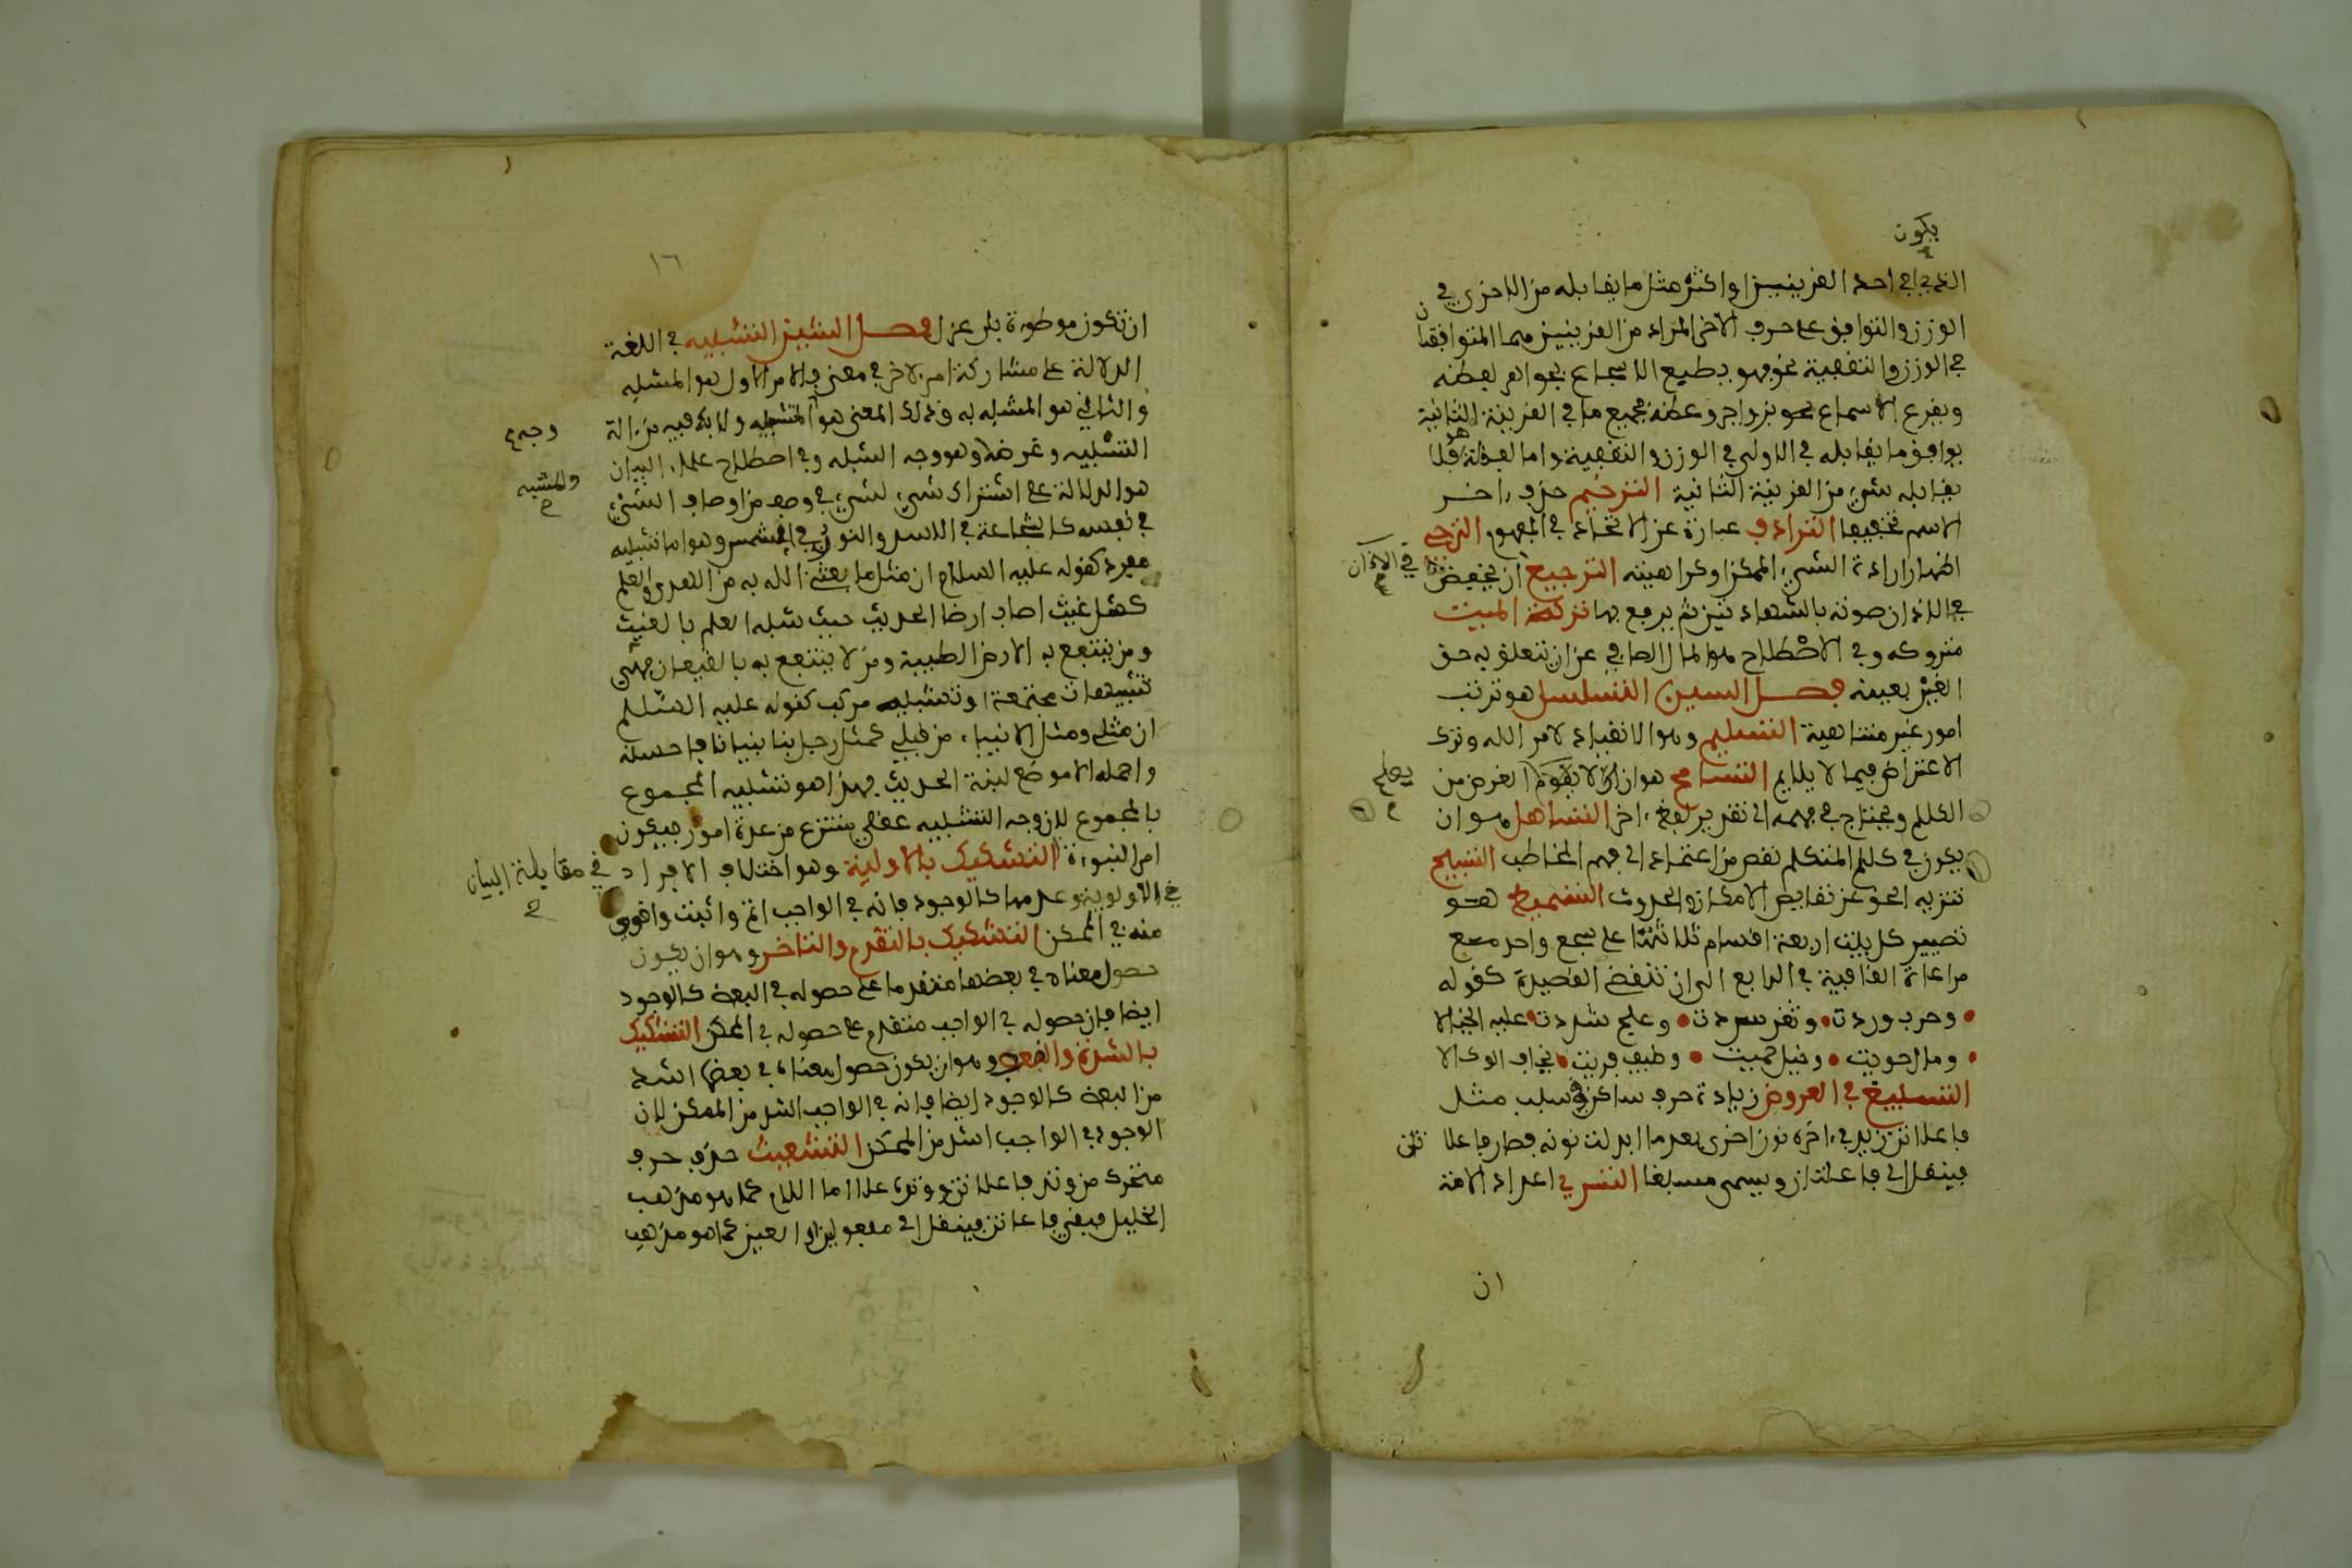 يكون
الذي في احد القرينتين او اكثر مثل ما يقابله من الاخرى في
الوزن والتوافق على حرف الاخر المراد من القرينتين هما المتوافقتان
في الوزن والتقفية نحو فهو يطبع الاسجاع بجواهر لفظه
ويقرع الاسماع بزواجر وعظه فجميع ما في القرينة الثانية
يوافق ما يقابله في الاولى في الوزن والتقفية واما لفظة هو فلا
يقابله شيء من القرينة الثانية الترخيم حذف اخر
الاسم تخفيفا الترادف عبارة عن الاتحاد في المفهوم الترجي
اظهار ارادة الشيء الممكن او كراهيته الترجيع ان يخفض
في الاذان
في الاذان صوته بالشهادتين ثم يرفع بها تركة الميت
متروكه وفي الاصطلاح هو المال الصافي عن ان يتعلق به حق
الغير بعينه فصل السين التسلسل هو ترتب
امور غير متناهية التسليم وهو الانقياد لامر الله وترك
الاعتراض فيما لا يلايم التسامح هو ان لا يعلم الغرض من
الكلام ويحتاج في فهمه الى تقدير لفظ اخر التساهل هو ان
يكون في كلام المتكلم نقص من اعتماد الى فهم المخاطب التسبيح
تنزيه الحق عن نقايص الامكان والحدوث التسميط هو
تصيير كل بيت اربعة اقسام ثلاثتها على سجع واحد مع
مراعاة القافية في الرابع الى ان تنقضي القصيدة كقوله
وحرب وردت وثغر سددت وعلج شددت عليه الحبالا
ومال حويت وخيل حميت وضيف قريت يخاف الوكالا
التسبيغ في العروض زيادة حرف ساكن في سبب مثل
فاعلاتن زيد في اخره نون اخرى بعد ما ابدلت نونه فصار فاعلا تتن
فينقل الى فاعلتان ويسمى مسبغا التسري اعداد الامة
ان
١٦
ان تكون موطوءة بلا عزل فصل الشين التشبيه في اللغة
الدلالة على مشاركة امر لاخر في معنى فالامر الاول هو المشبه
والثاني هو المشبه به وذلك المعنى هو وجه التشبيه ولا بد فيه من الة
التشبيه وغرضه وهو وجه الشبه وفي اصطلاح علماء البيان
والمشبه
هو الدلالة على اشتراك شيء لشيء في وصف من اوصاف الشيء
في نفسه كالشجاعة في الاسد والنور في الشمس وهو اما تشبيه
مفرد كقوله عليه السلام ان مثل ما بعثني الله به من الهدى والعلم
كمثل غيث اصاب ارضا الحديث حيث شبه العلم بالغيث
ومن ينتفع به الارض الطيبة ومن لا ينتفع به بالقيعان فهي
تشبيهات مجتمعة او تشبيه مركب كقوله عليه السلام
ان مثلي ومثل الانبياء من قبلي كمثل رجل بنا بنيانا فاحسنه
واجمله الا موضع لبنة الحديث فهذا هو تشبيه المجموع
بالمجموع لان وجه التشبيه عقلي ينتزع من عدة امور فيكون
امر النبوءة في مقابلة البنيان التشكيك بالاولية وهو اختلاف الافراد
في الاولوية وعدمها كالوجود فانه في الواجب اتم واثبت واقوى
منه في الممكن التشكيك بالتقدم والتاخر وهو ان يكون
حصول معناه في بعضها متقدما على حصوله في البعض كالوجود
ايضا فان حصوله في الواجب متقدم على حصوله في الممكن التشكيك
بالشدة والضعف وهو ان يكون حصول معناه في بعضها اشد
من البعض كالوجود ايضا فانه في الواجب اشد من الممكن لان
الوجود في الواجب اشد من الممكن التشعيث حذف حرف
متحرك من وتد فاعلاتن ووتده علا اما اللام كما هو مذهب
الخليل فيبقى فاعاتن فينقل الى مفعولن او العين كما هو مذهب